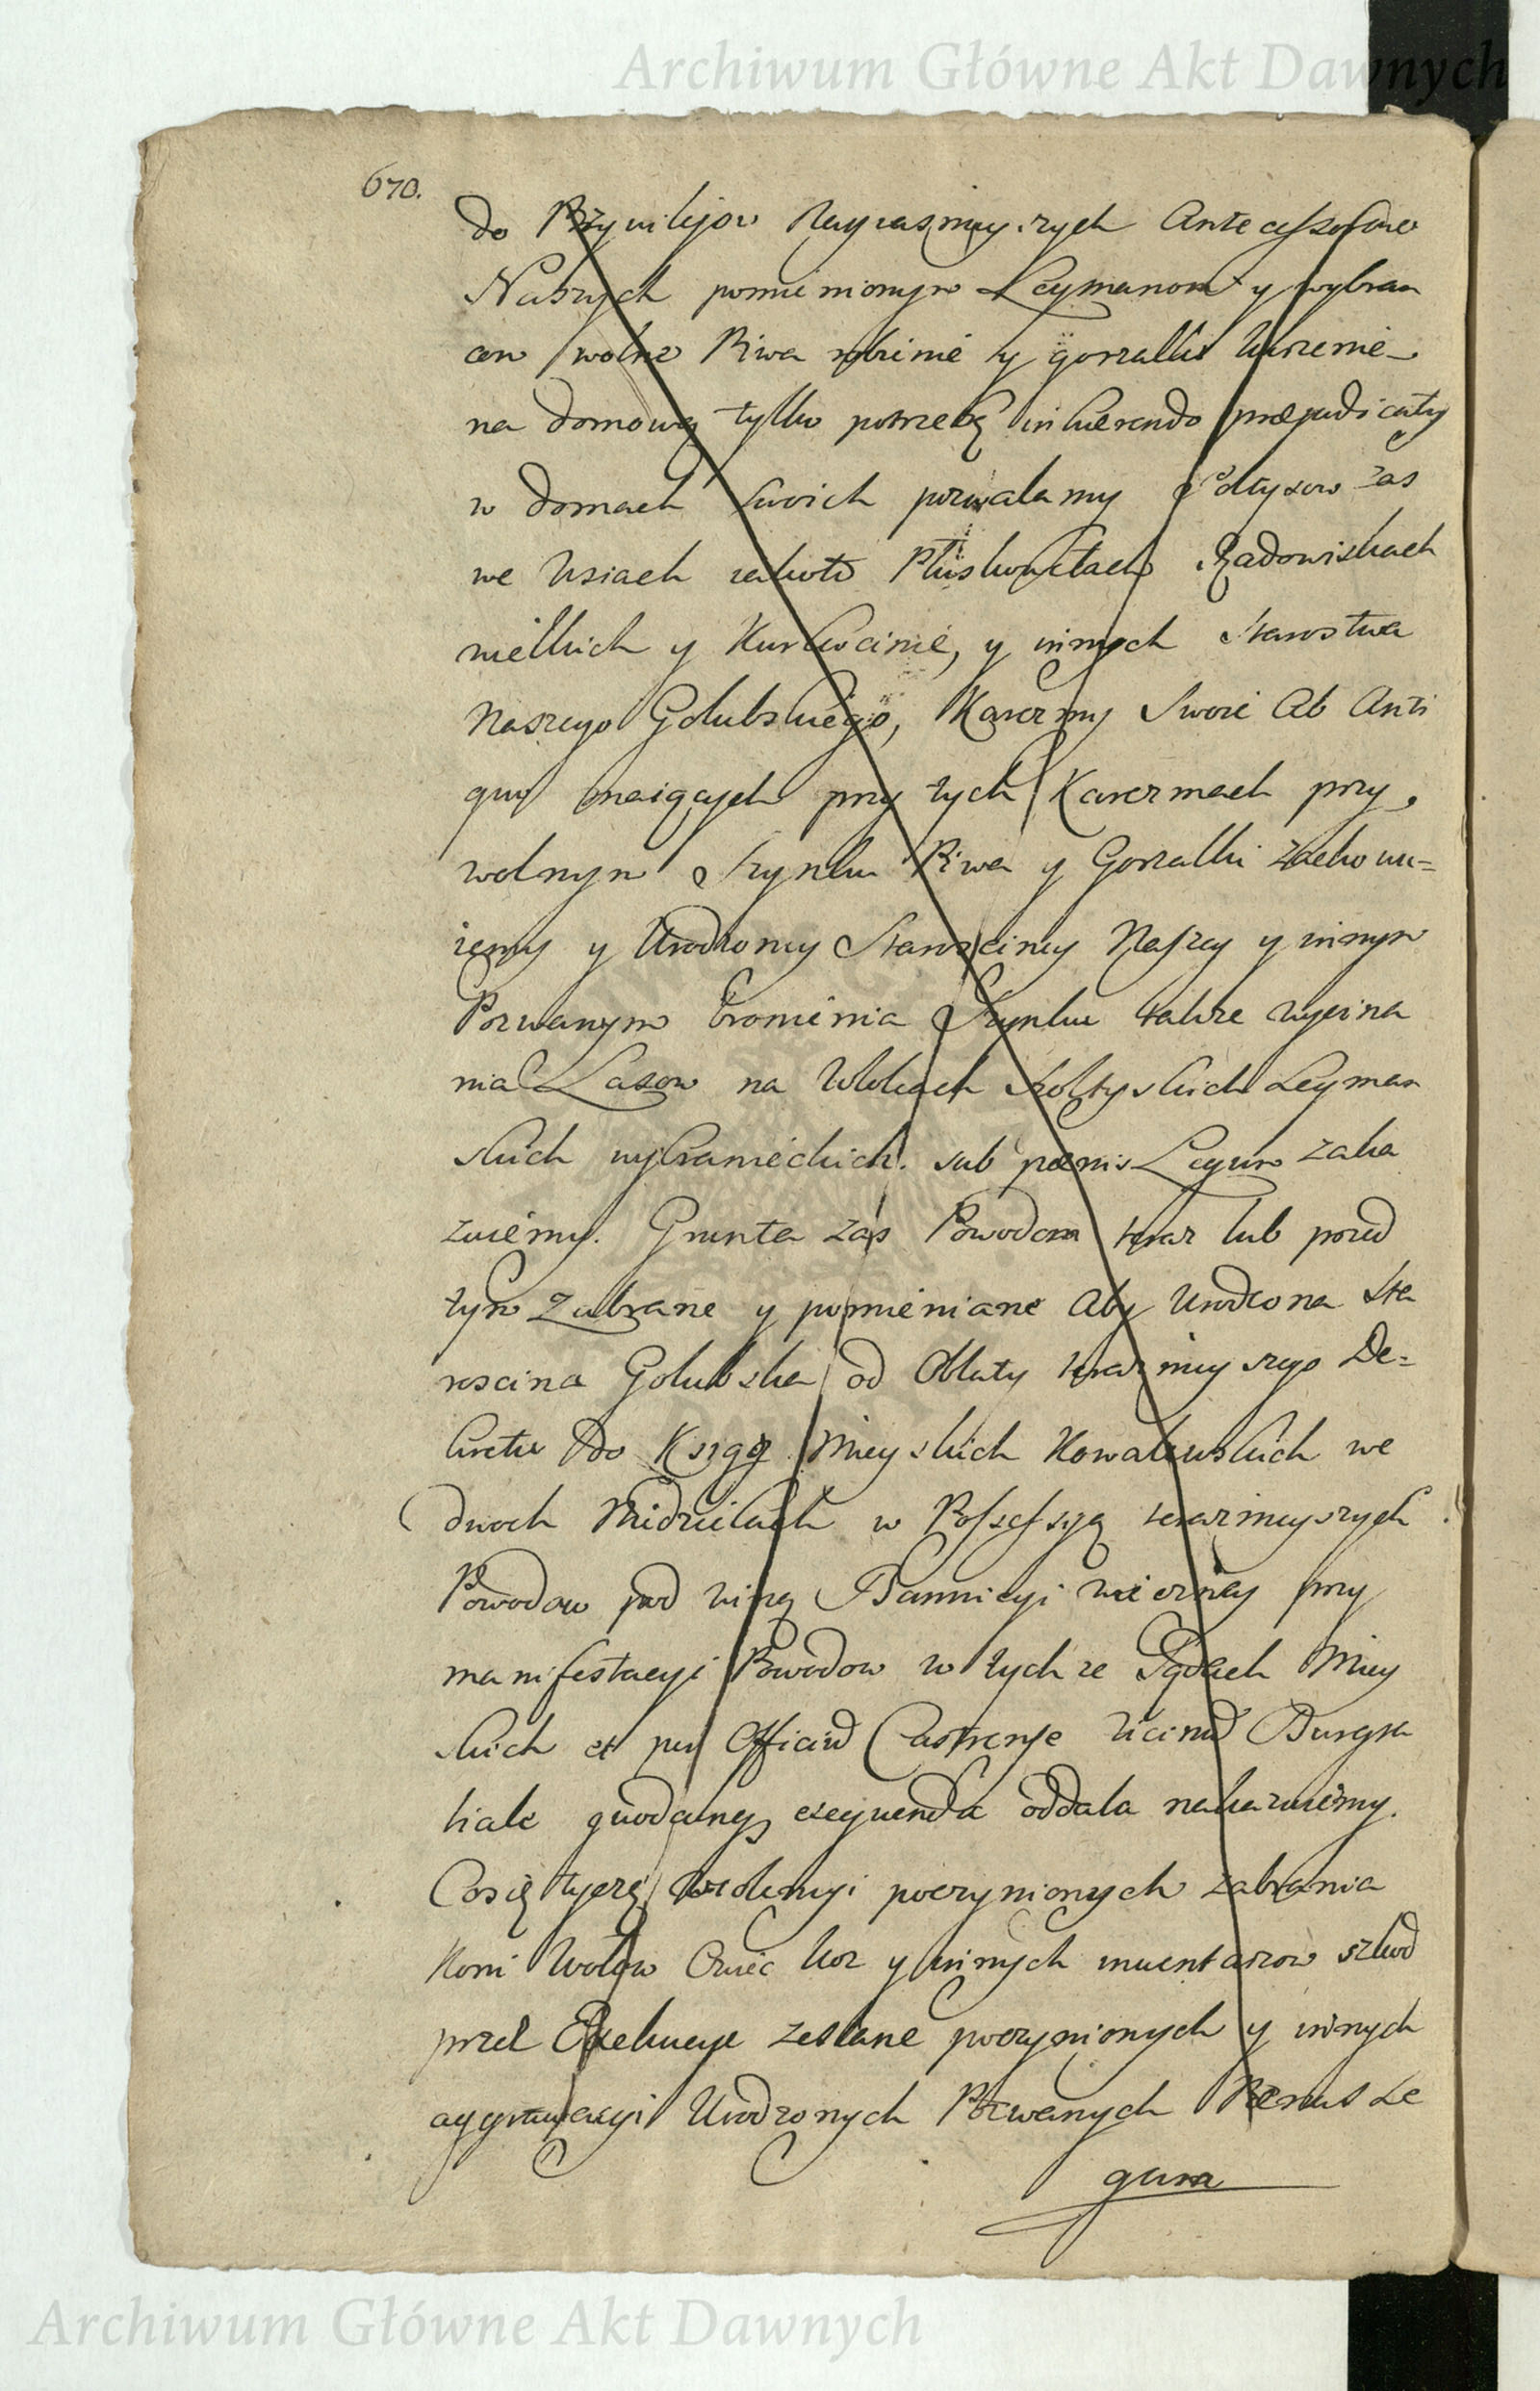 Archiwum Główne Akt Dawnych
670.
do Przywilejow Nayiasnieyszych Antecessorow
Naszych pomienionym Leymanom y wybran
com wolne Piwa robienie y gorzałki kurzenie
na domową tylko potrzebę inhaerendo praejudicaty
w domach swoich pozwalamy Szołtysow zas
we Wsiach Pluskowęsach Radowiskach
wielkich y Kurkocinie, y innych Starostwa
Naszego Golubskiego, Karczmy Swoie Ab Anti
quo maiących przy tych Karczmach przy
wolnym Szynku Piwa y Gorzałki zachowu=
iemy y Urodzoney Starosciney Naszey y innym
Pozwanym bronienia Szynku także wycina
nia Lasow na Włokach Szołtyskich Leyman
skich wybranieckich. sub poenis Legum zaka
zuiemy. Grunta zas Powodom teraz lub przed
tym Zabrane y pomieniane Aby Urodzona Sta
roscina Golubska od Oblaty teraznieyszego De=
kretu do Ksiąg Mieyskich Kowalewskich we
dwoch Niedzielach w Possessyą teraznieyszych
Powodow pod winą Bannicyi wieczney przy
manifestacyi Powodow w tychze Xięgach Miey
skich et per Officiu Castrense vicinu Burgra
biale quodcunq exequenda oddała nakazuiemy.
Co się tycze Violencyi poczynionych zabrania
Koni Wołow Owiec Koz y innych inwentarzow szkod
przez Exekucye zesłane poczynionych y innych
aggrawacyi Urodzonych Pozwanych Paenas Le
gum
Archiwum Główne Akt Dawnych